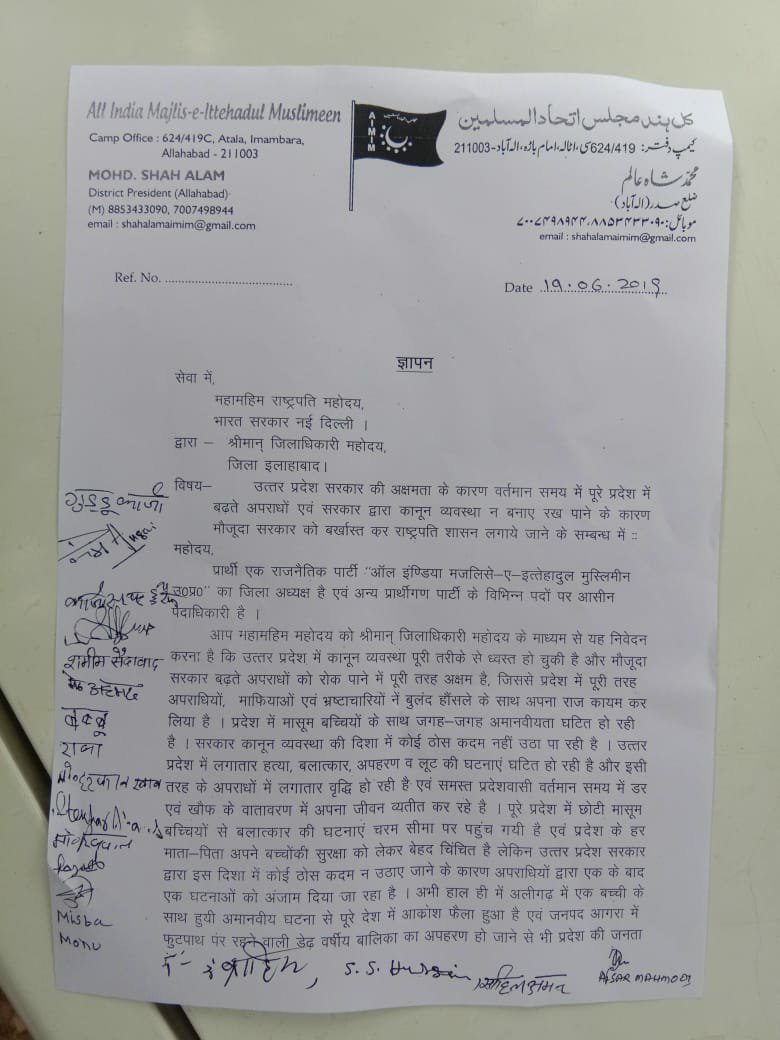 All India Majlis-e-Ittehadul Muslimeen
Camp Office : 624/419C, Atala, Imambara,
Allahabad - 211003
MOHD. SHAH ALAM
District President (Allahabad)
(M) 8853433090, 7007498944
email : shahalamaimim@gmail.com
AIMIM
کل ہند مجلس اتحاد المسلمین
کیمپ دفتر: 624/419سی، اٹالہ، امام باڑہ، الہ آباد-211003
محمد شاہ عالم
ضلع صدر (الہ آباد)
موبائل: ۸۸۵۳۴۳۳۰۹۰، ۷۰۰۷۴۹۸۹۴۴
email : shahalamaimim@gmail.com
Ref. No. ................................
Date 19.06.2019
ज्ञापन
सेवा में,
महामहिम राष्ट्रपति महोदय,
भारत सरकार नई दिल्ली ।
द्वारा – श्रीमान् जिलाधिकारी महोदय,
जिला इलाहाबाद।
विषय– उत्तर प्रदेश सरकार की अक्षमता के कारण वर्तमान समय में पूरे प्रदेश में
बढ़ते अपराधों एवं सरकार द्वारा कानून व्यवस्था न बनाए रख पाने के कारण
मौजूदा सरकार को बर्खास्त कर राष्ट्रपति शासन लगाये जाने के सम्बन्ध में ::
महोदय,
प्रार्थी एक राजनैतिक पार्टी "ऑल इंण्डिया मजलिसे–ए–इत्तेहादुल मुस्लिमीन
उ0प्र0" का जिला अध्यक्ष है एवं अन्य प्रार्थीगण पार्टी के विभिन्न पदों पर आसीन
पदाधिकारी है ।
आप महामहिम महोदय को श्रीमान् जिलाधिकारी महोदय के माध्यम से यह निवेदन
करना है कि उत्तर प्रदेश में कानून व्यवस्था पूरी तरीके से ध्वस्त हो चुकी है और मौजूदा
सरकार बढ़ते अपराधों को रोक पाने में पूरी तरह अक्षम है, जिससे प्रदेश में पूरी तरह
अपराधियों, माफियाओं एवं भ्रष्टाचारियों नें बुलंद हौंसले के साथ अपना राज कायम कर
लिया है । प्रदेश में मासूम बच्चियों के साथ जगह–जगह अमानवीयता घटित हो रही
है । सरकार कानून व्यवस्था की दिशा में कोई ठोस कदम नहीं उठा पा रही है । उत्तर
प्रदेश में लगातार हत्या, बलात्कार, अपहरण व लूट की घटनाएं घटित हो रही है और इसी
तरह के अपराधों में लगातार वृद्धि हो रही है एवं समस्त प्रदेशवासी वर्तमान समय में डर
एवं खौफ के वातावरण में अपना जीवन व्यतीत कर रहे है । पूरे प्रदेश में छोटी मासूम
बच्चियों से बलात्कार की घटनाएं चरम सीमा पर पहुंच गयी है एवं प्रदेश के हर
माता–पिता अपने बच्चोंकी सुरक्षा को लेकर बेहद चिंचित है लेकिन उत्तर प्रदेश सरकार
द्वारा इस दिशा में कोई ठोस कदम न उठाए जाने के कारण अपराधियों द्वारा एक के बाद
एक घटनाओं को अंजाम दिया जा रहा है । अभी हाल ही में अलीगढ़ में एक बच्ची के
साथ हुयी अमानवीय घटना से पूरे देश में आकोश फैला हुआ है एवं जनपद आगरा में
फुटपाथ पंर रहने वाली डेढ़ वर्षीय बालिका का अपहरण हो जाने से भी प्रदेश की जनता
गुड्डू काजी
शमीम
बब्बू
राजा
Misba
Monu
S.S. Hussain
AFSAR MAHMOOD